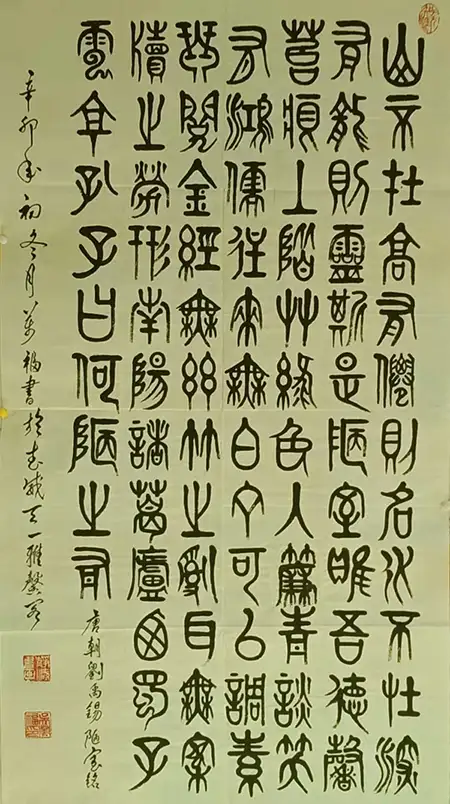 山不在高有僊則名水不在深
有龍則靈斯是陋室唯吾德馨
苔痕上階艸綠色入簾青談笑
有鴻儒往來無白丁可以調素
琴閱金經無絲竹之亂耳無案
牘之勞形南陽諸葛廬西蜀子
雲亭孔子曰何陋之有
唐朝劉禹錫陋室銘
辛卯年初冬月萬福書於武威天一雅馨